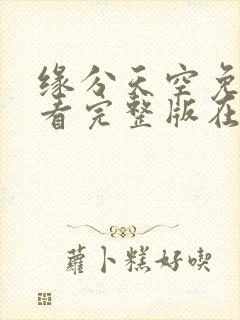 缘分天空免
看完整版在
蘿卜糕好喫